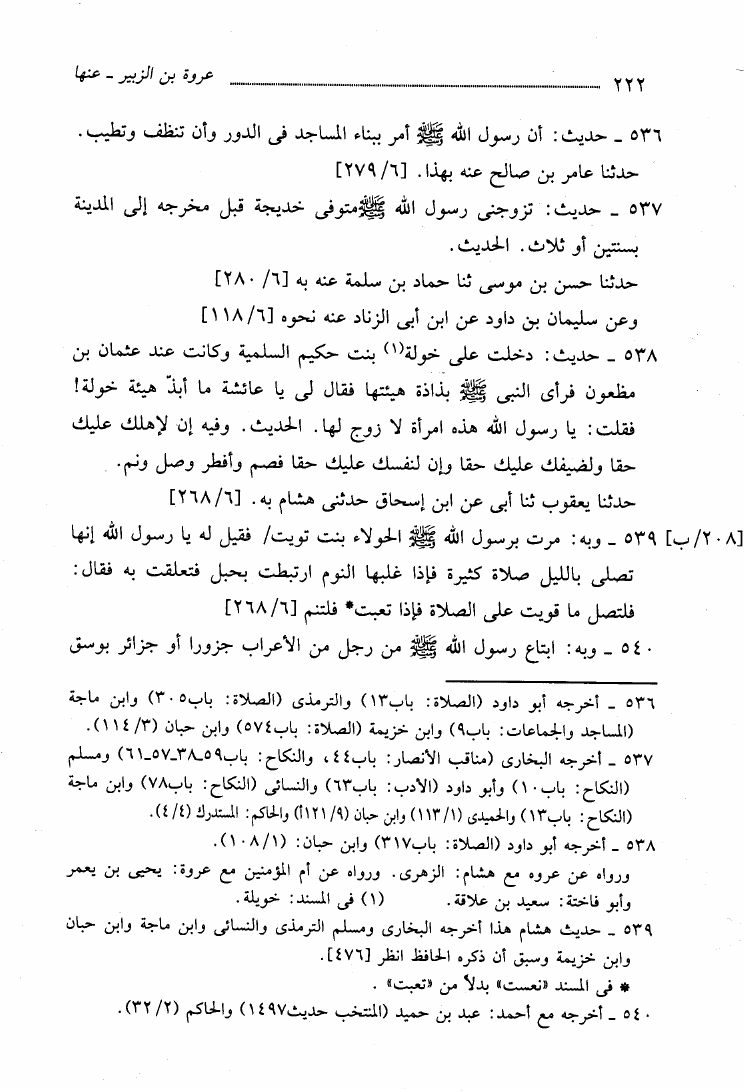 ٢٢٢ ........ عروة بن الزبير ـ عنها
٥٣٦ ـ حديث: أن رسول الله ﷺ أمر ببناء المساجد فى الدور وأن تنظف وتطيب.
حدثنا عامر بن صالح عنه بهذا. [٢٧٩/٦]
٥٣٧ ـ حديث: تزوجنى رسول الله ﷺ متوفى خديجة قبل مخرجه إلى المدينة
بسنتين أو ثلاث. الحديث.
حدثنا حسن بن موسى ثنا حماد بن سلمة عنه به [٦/ ٢٨٠]
وعن سليمان بن داود عن ابن أبى الزناد عنه نحوه [١١٨/٦]
٥٣٨ ـ حديث: دخلت على خولة(١) بنت حكيم السلمية وكانت عند عثمان بن
مظعون فرأى النبى ﷺ بذاذة هيئتها فقال لى يا عائشة ما أبذّ هيئة خولة!
فقلت: يا رسول الله هذه امرأة لا زوج لها. الحديث. وفيه إن لإهلك عليك
حقا ولضيفك عليك حقا وإن لنفسك عليك حقا فصم وأفطر وصل ونم.
حدثنا يعقوب ثنا أبى عن ابن إسحاق حدثنى هشام به. [٢٦٨/٦]
[٢٠٨/ب] ٥٣٩ ـ وبه: مرت برسول الله ﷺ الحولاء بنت تويت/ فقيل له يا رسول الله إنها
تصلى بالليل صلاة كثيرة فإذا غلبها النوم ارتبطت بحبل فتعلقت به فقال:
فلتصل ما قويت على الصلاة فإذا تعبت* فلتنم [٢٦٨/٦]
٥٤٠ ـ وبه: ابتاع رسول الله ﷺ من رجل من الأعراب جزورا أو جزائر بوسق
٥٣٦ ـ أخرجه أبو داود (الصلاة: باب١٣) والترمذى (الصلاة: باب٣٠٥) وابن ماجة
(المساجد والجماعات: باب٩) وابن خزيمة (الصلاة: باب٥٧٤) وابن حبان (٣/ ١١٤).
٥٣٧ ـ أخرجه البخارى (مناقب الأنصار: باب٤٤، والنكاح: باب٥٩ـ٣٨ـ٥٧ـ٦١) ومسلم
(النكاح: باب١٠) وأبو داود (الأدب: باب٦٣) والنسائى (النكاح: باب٧٨) وابن ماجة
(النكاح: باب١٣) والحميدى (١١٣/١) وابن حبان (٩/ ١٢١أ) والحاكم: المستدرك (٤/٤).
٥٣٨ ـ أخرجه أبو داود (الصلاة: باب٣١٧) وابن حبان: (١٠٨/١).
ورواه عن عروه مع هشام: الزهرى. ورواه عن أم المؤمنين مع عروة: يحيى بن يعمر
وأبو فاختة: سعيد بن علاقة. (١) فى المسند: خويلة.
٥٣٩ ـ حديث هشام هذا أخرجه البخارى ومسلم الترمذى والنسائى وابن ماجة وابن حبان
وابن خزيمة وسبق أن ذكره الحافظ انظر [٤٧٦].
* فى المسند «نعست» بدلاً من «تعبت» .
٥٤٠ ـ أخرجه مع أحمد: عبد بن حميد (المنتخب حديث١٤٩٧) والحاكم (٢/ ٣٢).